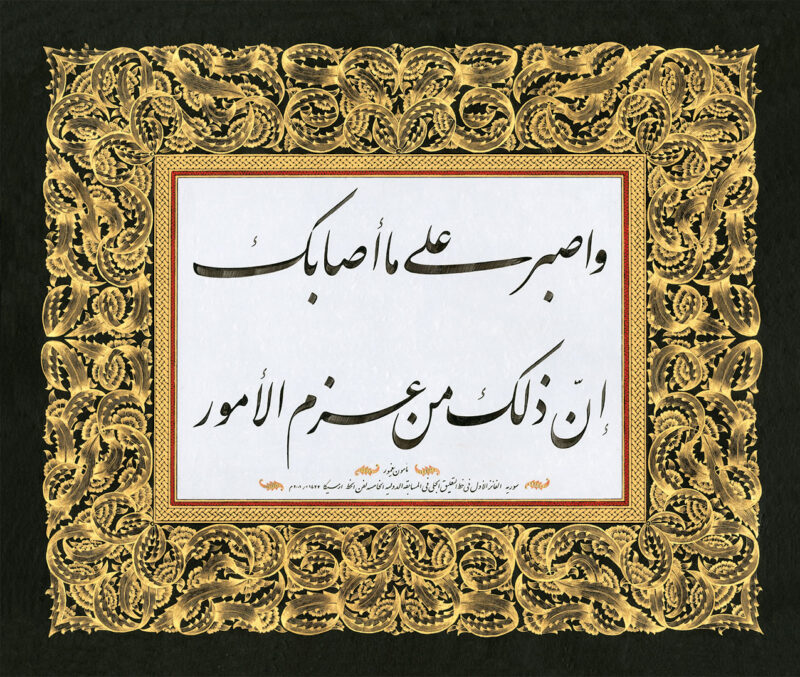 واصبر على ما أصابك
إنّ ذلك من عزم الأمور
مأمون يغمور
سورية الفائز الأول في خط التعليق الجلي في المسابقة الدولية الخامسة لفن الخط ارسيكا